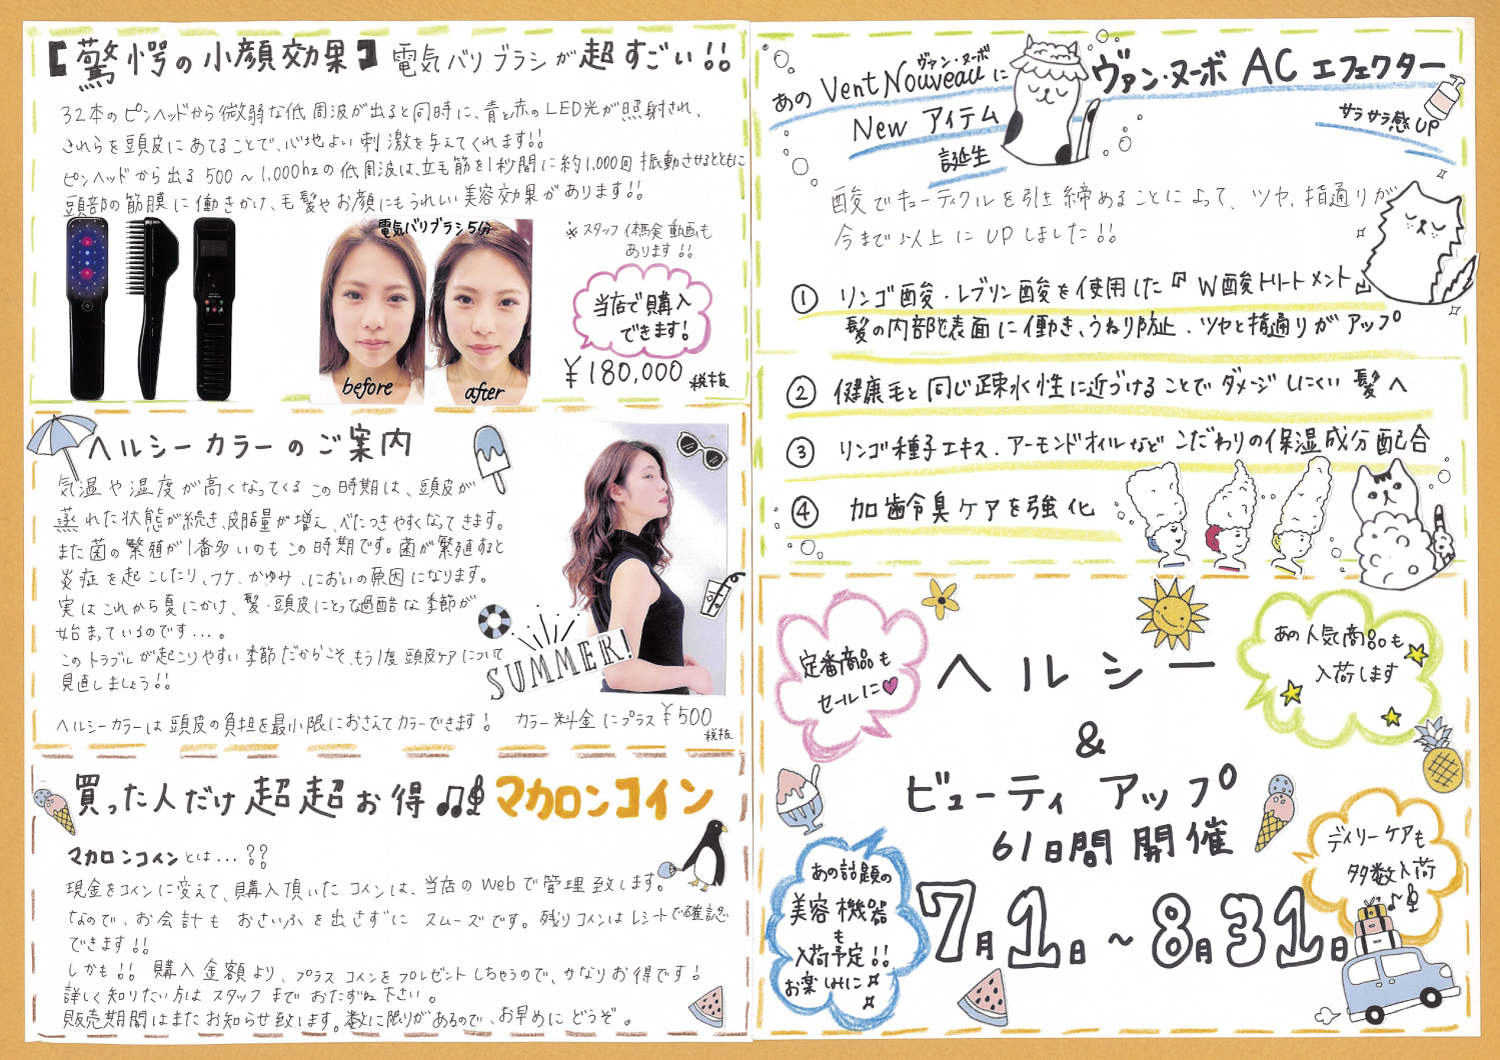 【驚愕の小顔効果】電気バリブラシが超すごい!!
32本のピンヘッドから微弱な低周波が出ると同時に、青と赤のLED光が照射され、
これらを頭皮にあてることで、心地よい刺激を与えてくれます!!
ピンヘッドから出る500～1,000hzの低周波は、立毛筋を1秒間に約1,000回振動させるとともに
頭部の筋膜に働きかけ、毛髪やお顔にもうれしい美容効果があります!!
電気バリブラシ5分
before
after
※スタッフ体験動画も
あります!!
当店で購入
できます!
¥180,000 税抜
ヘルシーカラーのご案内
気温や湿度が高くなってくるこの時期は、頭皮が
蒸れた状態が続き、皮脂量が増え、べたつきやすくなってきます。
また菌の繁殖が1番多いのもこの時期です。菌が繁殖すると
炎症を起こしたり、フケ、かゆみ、においの原因になります。
実はこれから夏にかけ、髪・頭皮にとって過酷な季節が
始まっているのです...。
このトラブルが起こりやすい季節だからこそ、もう1度頭皮ケアについて
見直しましょう!!
SUMMER!
ヘルシーカラーは頭皮の負担を最小限におさえてカラーできます! カラー料金にプラス¥500
税抜
買った人だけ超超お得♫ マカロンコイン
マカロンコインとは...??
現金をコインに変えて、購入頂いたコインは、当店のWebで管理致します。
なので、お会計もおさいふを出さずにスムーズです。残りコインはレシートで確認
できます!!
しかも!! 購入金額より、プラスコインをプレゼントしちゃうので、かなりお得です!
詳しく知りたい方はスタッフまでおたずね下さい。
販売期間はまたお知らせ致します。数に限りがあるので、お早めにどうぞ。
ヴァン・ヌーボ
あのVent Nouveauに
New アイテム
誕生
ヴァン・ヌーボ ACエフェクター
サラサラ感UP
酸でキューティクルを引き締めることによって、ツヤ、指通りが
今まで以上にUPしました!!
① リンゴ酸・レブリン酸を使用した『W酸トリートメント』
髪の内部と表面に働き、うねり防止、ツヤと指通りがアップ
② 健康毛と同じ疎水性に近づけることでダメージしにくい髪へ
③ リンゴ種子エキス、アーモンドオイルなどこだわりの保湿成分配合
④ 加齢臭ケアを強化
定番商品も
セールに♥
あの人気商品も
入荷します
ヘルシー
&
ビューティアップ
61日間開催
7月1日～8月31日
あの話題の
美容機器
も
入荷予定!!
お楽しみに♪
デイリーケアも
多数入荷
♪